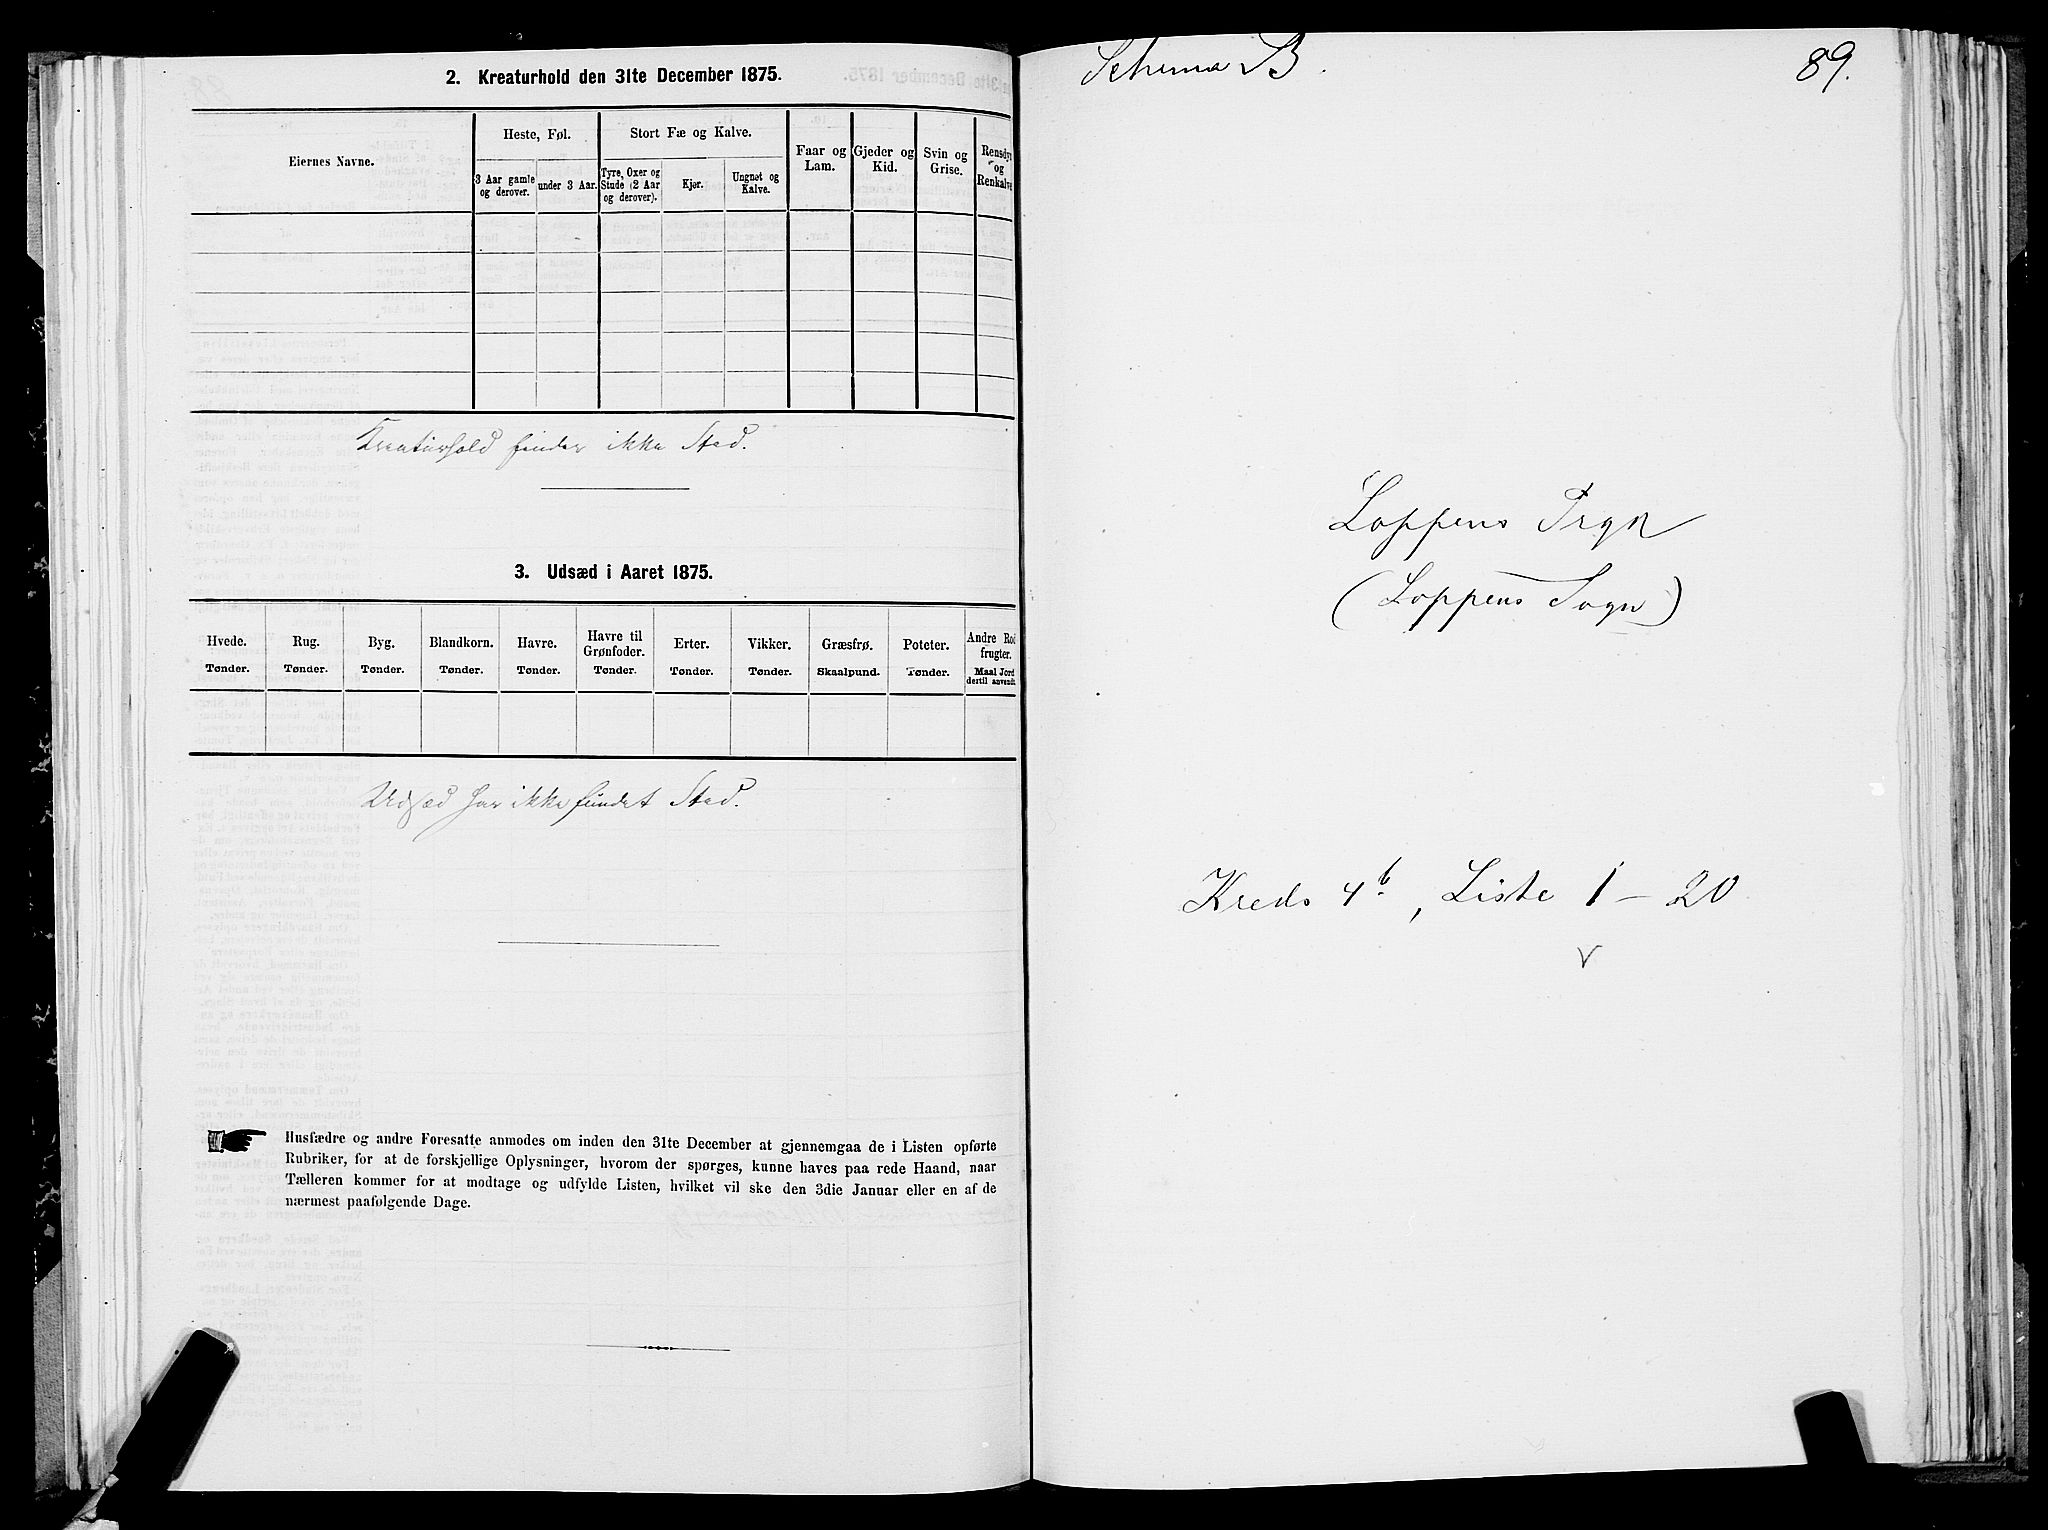 2. Kreaturhold den 31te December 1875.
Eiernes Navne.
Heste, Føl.
Stort Fæ og Kalve.
Faar og Lam.
Gjeder og Kid.
Svin og Grise.
Rensdyr og Renkalve
3 Aar gamle og derover.
under 3 Aar.
Tyre, Oxer og Stude (2 Aar og derover).
Kjør.
Ungnøt og Kalve.
Kreaturhold finder ikke Sted.
3. Udsæd i Aaret 1875.
Hvede. Rug. Byg. Blandkorn. Havre. Havre til Grønfoder. Erter. Vikker. Græsfrø. Poteter. Andre Rodfrugter.
Tønder. Tønder. Tønder. Tønder. Tønder. Tønder. Tønder. Tønder. Skaalpund. Tønder. Maal Jord dertil anvendt.
Udsæd har ikke fundet Sted.
Husfædre og andre Foresatte anmodes om inden den 31te December at gjennemgaa de i Listen opførte
Rubriker, for at de forskjellige Oplysninger, hvorom der spørges, kunne haves paa rede Haand, naar
Tælleren kommer for at modtage og udfylde Listen, hvilket vil ske den 3die Januar eller en af de
nærmest paafølgende Dage.
Schema B.
89.
Loppens Prgn
(Loppens Sogn)
Kreds 4b, Liste 1 – 20